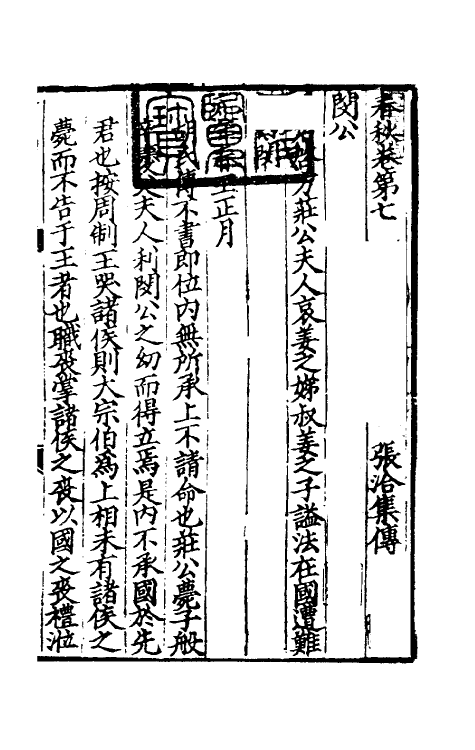 春秋卷第七 張洽集傳
閔公
名啓方莊公夫人哀姜之娣叔姜之子謚法在國遭難
王正月
胡氏傳不書即位內無所承上不請命也莊公薨子般
夫人利閔公之幼而得立焉是內不承國於先
君也按周制王哭諸侯則大宗伯為上相未有諸侯之
薨而不告于王者也職喪掌諸侯之喪以國之喪禮涖